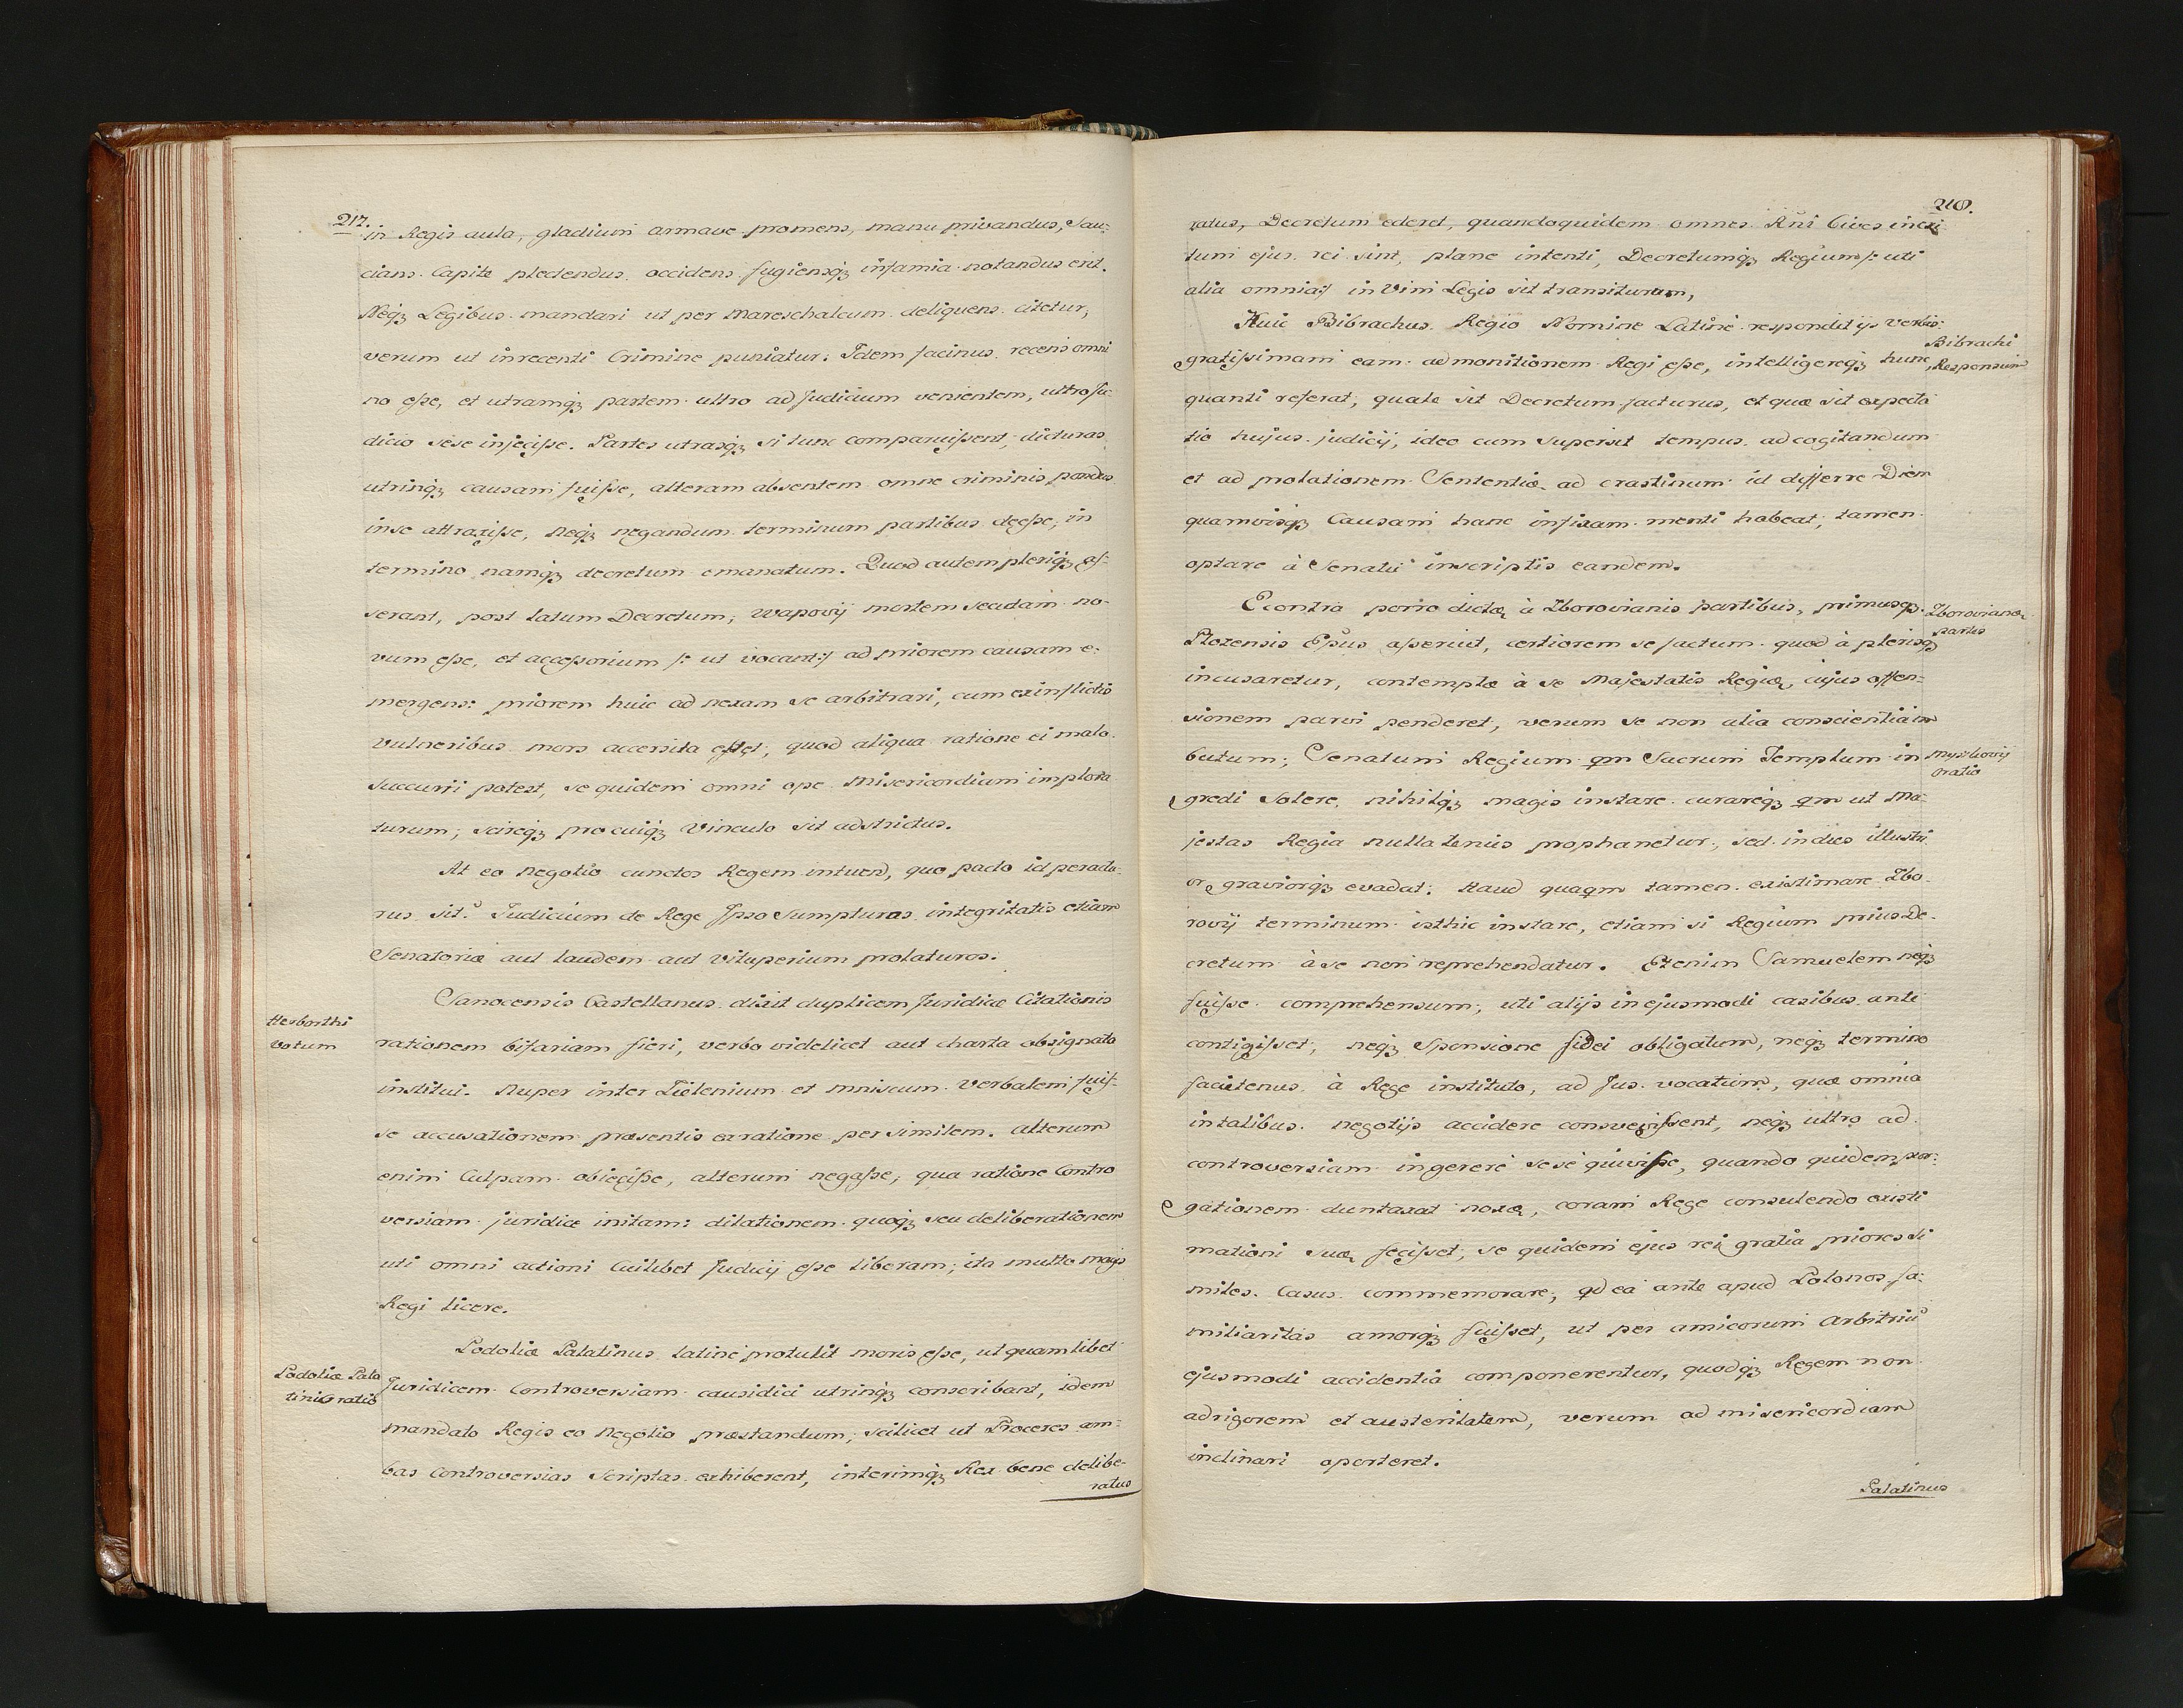 217.
in Regis aula, gladium armave promens, manu privandus, Sau-
cians Capite plectendus occidens fugiensq; infamia notandus erit.
Neq; Legibus mandari ut per Mareschalcum deliquens citetur,
verum ut in recenti Crimine puniatur: Idem facinus recens omni
no eſse, et utramq; partem ultro ad Judicium venientem, ultro Ju-
dicio sese injeciſse. Partes utrasq; si tunc comparuiſsent, dicturas
utrinq; causam fuiſse, alteram absentem omne criminis pondus
in se attraxiſse, neq; negandum terminum partibus deeſse, in
termino namq; decretum emanatum. Quod autem pleriq; aſ-
serant, post latum Decretum, Wapovij mortem secutam no-
vum eſse, et acceſsorium /: ut vocant :/ ad priorem causam e-
mergens: priorem huic ad nexam se arbitrari, cum ex inflictis
vulneribus mors accersita eſset, quod aliqua ratione ei malo
succurri potest, se quidem omni ope Misericordium implora
turum, scireq; pro cuiq; vinculo sit adstrictus.
At eo negotio cunctos Regem intueri, quo pacto id peractu-
rus sit? Judicium de Rege Ipso Sumpturos integritatis etiam
Senatoriæ aut laudem aut vituperium prolaturos.
Herborthi
votum
Sanocensis Castellanus dixit duplicem Juridicæ Citationis
rationem bifariam fieri, verbo videlicet aut charta obsignato
institui. Nuper inter Zielenium et Mniscum Verbalem fuiſ-
se accusationem præsentis ex ratione persimilem. Alterum
enim Culpam obieciſse, alterum negaſse, qua ratione Contro
versiam juridice initam: dilationem quoq; seu deliberationem
uti omni actioni Cuilibet Judicij eſse liberam, ita multo magis
Regi licere.
Podoliæ Pala
tinus ratio
Podoliæ Palatinus latine protulit moris eſse, ut quam libet
Juridicem Controversiam causidici utrinq; conscribant, idem
mandato Regis eo negotio præstandum, scilicet ut Proceres am-
bas Controversias Scriptas exhiberent, interimq; Rex bene delibe-
ratus
218.
ratus, Decretum ederet, quandoquidem omnes Rñi Cives in exi
tum ejus rei sint, plane intenti, Decretumq; Regium /: uti
alia omnia :/ in Vim Legis sit transiturum,
Huic Bibrachus Regio Nomine Latine respondit ijs verbis:
Bibrachi
Responsum
gratiſsimam eam admonitionem Regi eſse, intelligereq; hunc
quanti referat, quale sit Decretum facturus, et quæ sit expecta
tio hujus judicij, ideo cum Supersit tempus ad cogitandum
et ad prolationem Sententiæ ad crastinum id differre Diem
quamvisq; Causam hanc infixam menti habeat, tamen
optare à Senatu inscriptis eandem.
Econtra porro dictæ à Zborovianis partibus, primusq;
Zborovianæ
partis
Plozensis Epũs aſseruit, certiorem se factum quod à plerisq;
incusaretur, contemptæ à se Majestatis Regiæ, cujus offen-
sionem parvi penderet, verum se non alia conscientia im
butum, Senatum Regium qm Sacrum Templum in
Myszkovij
oratio
gredi Solere, nihilq; magis instare curareq; qm ut Ma-
jestas Regia nulla tenus prophanetur, sed in dies illustri
or, graviorq; evadat: Haud quaqm tamen existimare Zbo-
rovij terminum isthic instare, etiam si Regium prius De-
cretum à se non reprehendatur. Etenim Samuelem neq;
fuiſse comprehensum, uti alijs in ejusmodi casibus ante
contigiſset, neq; Sponsione fidei obligatum, neq; termino
facietenus à Rege instituto, ad Jus vocatum, quæ omnia
in talibus negotijs accidere consveviſsent, neq; ultro ad
controversiam ingerere sese quiviſse, quando quidem pur-
gationem duntaxat noxæ, coram Rege consulendo existi
mationi suæ feciſset, se quidem ejus rei gratia priores si
miles Casus commemorare, qd ea ante apud Polonos fa-
miliaritas amorq; fuiſset, ut per amicorum Arbitriũ
ejusmodi accidentia componerentur, quodq; Regem non
ad rigorem et austeritatem, verum ad misericordiam
inclinari oporteret.
Palatinus